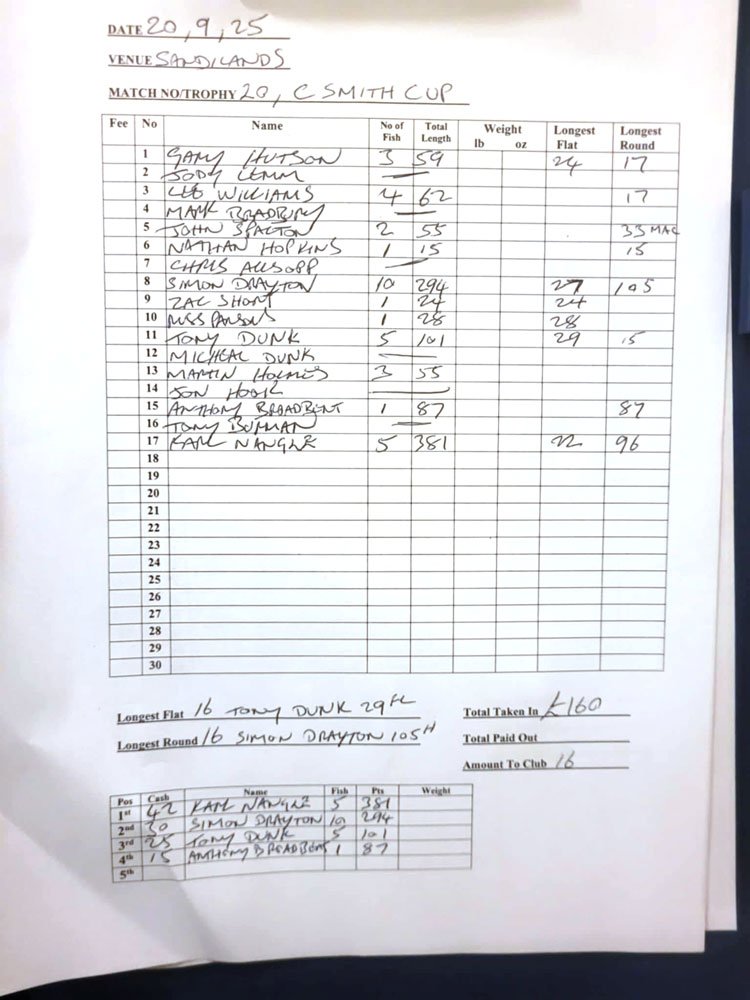 DATE 20, 9, 25
VENUE SANDILANDS
MATCH NO/TROPHY 20, C SMITH CUP
Fee No Name No of Fish Total Length Weight lb oz Longest Flat Longest Round
1 GARY HUTSON 3 59 24 17
2 JODY LEMM —
3 LEE WILLIAMS 4 62 17
4 MARK BRADBURY —
5 JOHN 2 55 33 MAC
6 NATHAN HOPKINS 1 15 15
7 CHRIS ALLSOPP —
8 SIMON DRAYTON 10 294 27 105
9 ZAC SHORT 1 24 24
10 1 28 28
11 TONY DUNK 5 101 29 15
12 MICHEAL DUNK —
13 MARTIN HOLMES 3 55
14 JON HOOK —
15 ANTHONY BROADBENT 1 87 87
16 TONY —
17 KARL NANGLE 5 381 22 96
18
19
20
21
22
23
24
25
26
27
28
29
30
Longest Flat 16 TONY DUNK 29 FL
Longest Round 16 SIMON DRAYTON 105 H
Total Taken In £160
Total Paid Out
Amount To Club 16
Pos Cash Name Fish Pts Weight
1st 42 KARL NANGLE 5 381
2nd 30 SIMON DRAYTON 10 294
3rd 25 TONY DUNK 5 101
4th 15 ANTHONY BROADBENT 1 87
5th